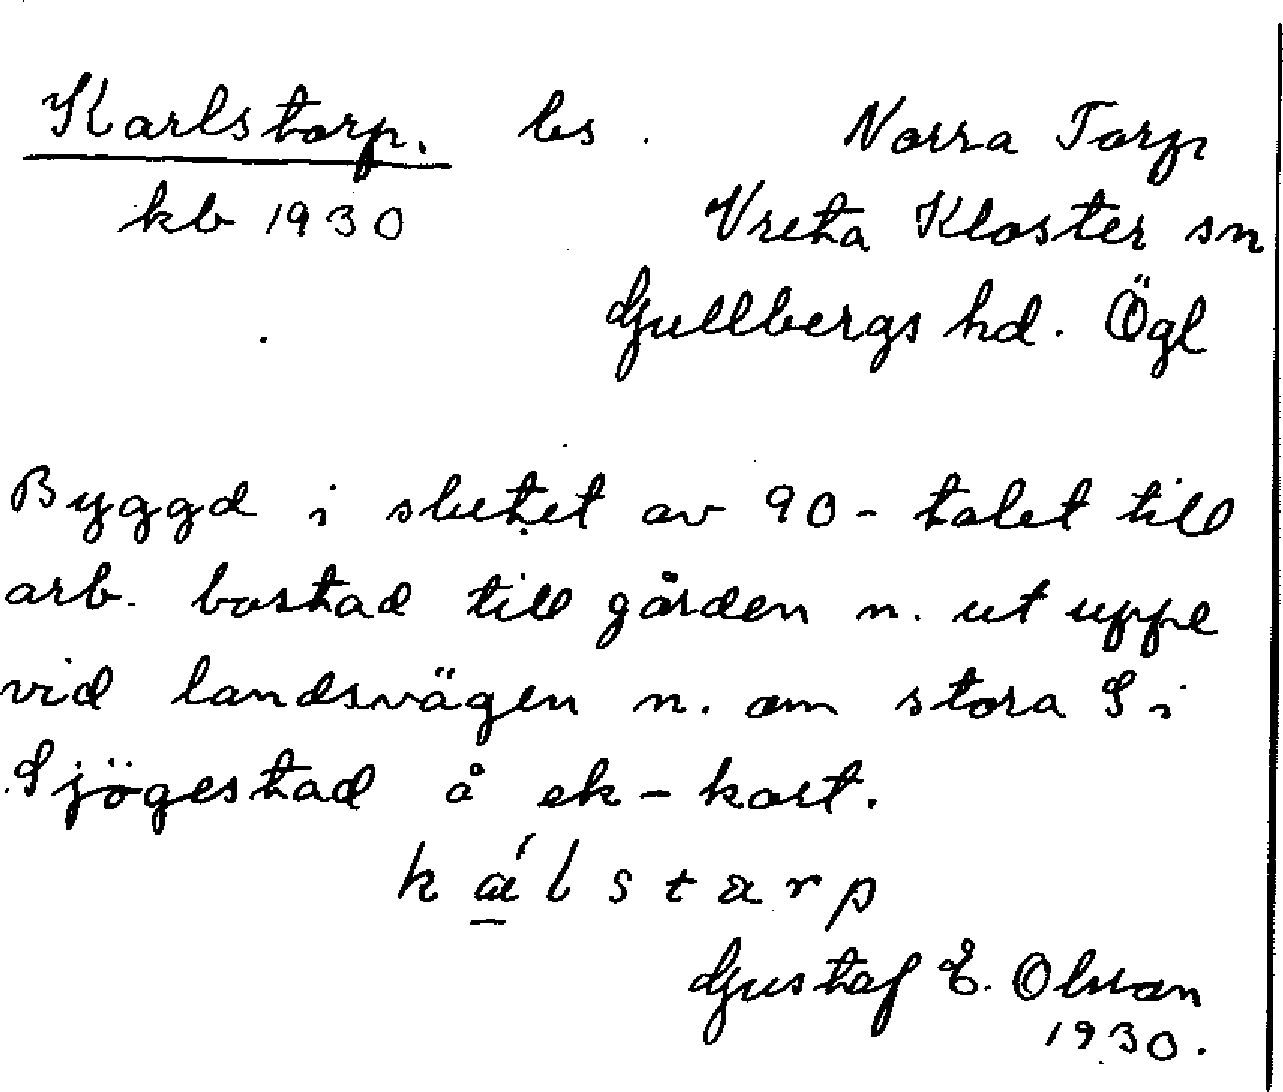 Karlstorp. ls. Norra Torp
kb 1930 Vreta Kloster sn
Gullbergs hd. Ögl
Byggd i slutet av 90-talet till
arb. bostad till gården n. ut uppe
vid landsvägen n. om stora S i
Sjögestad å ek-kart.
kálstarp
Gustaf E. Olsson
1930.